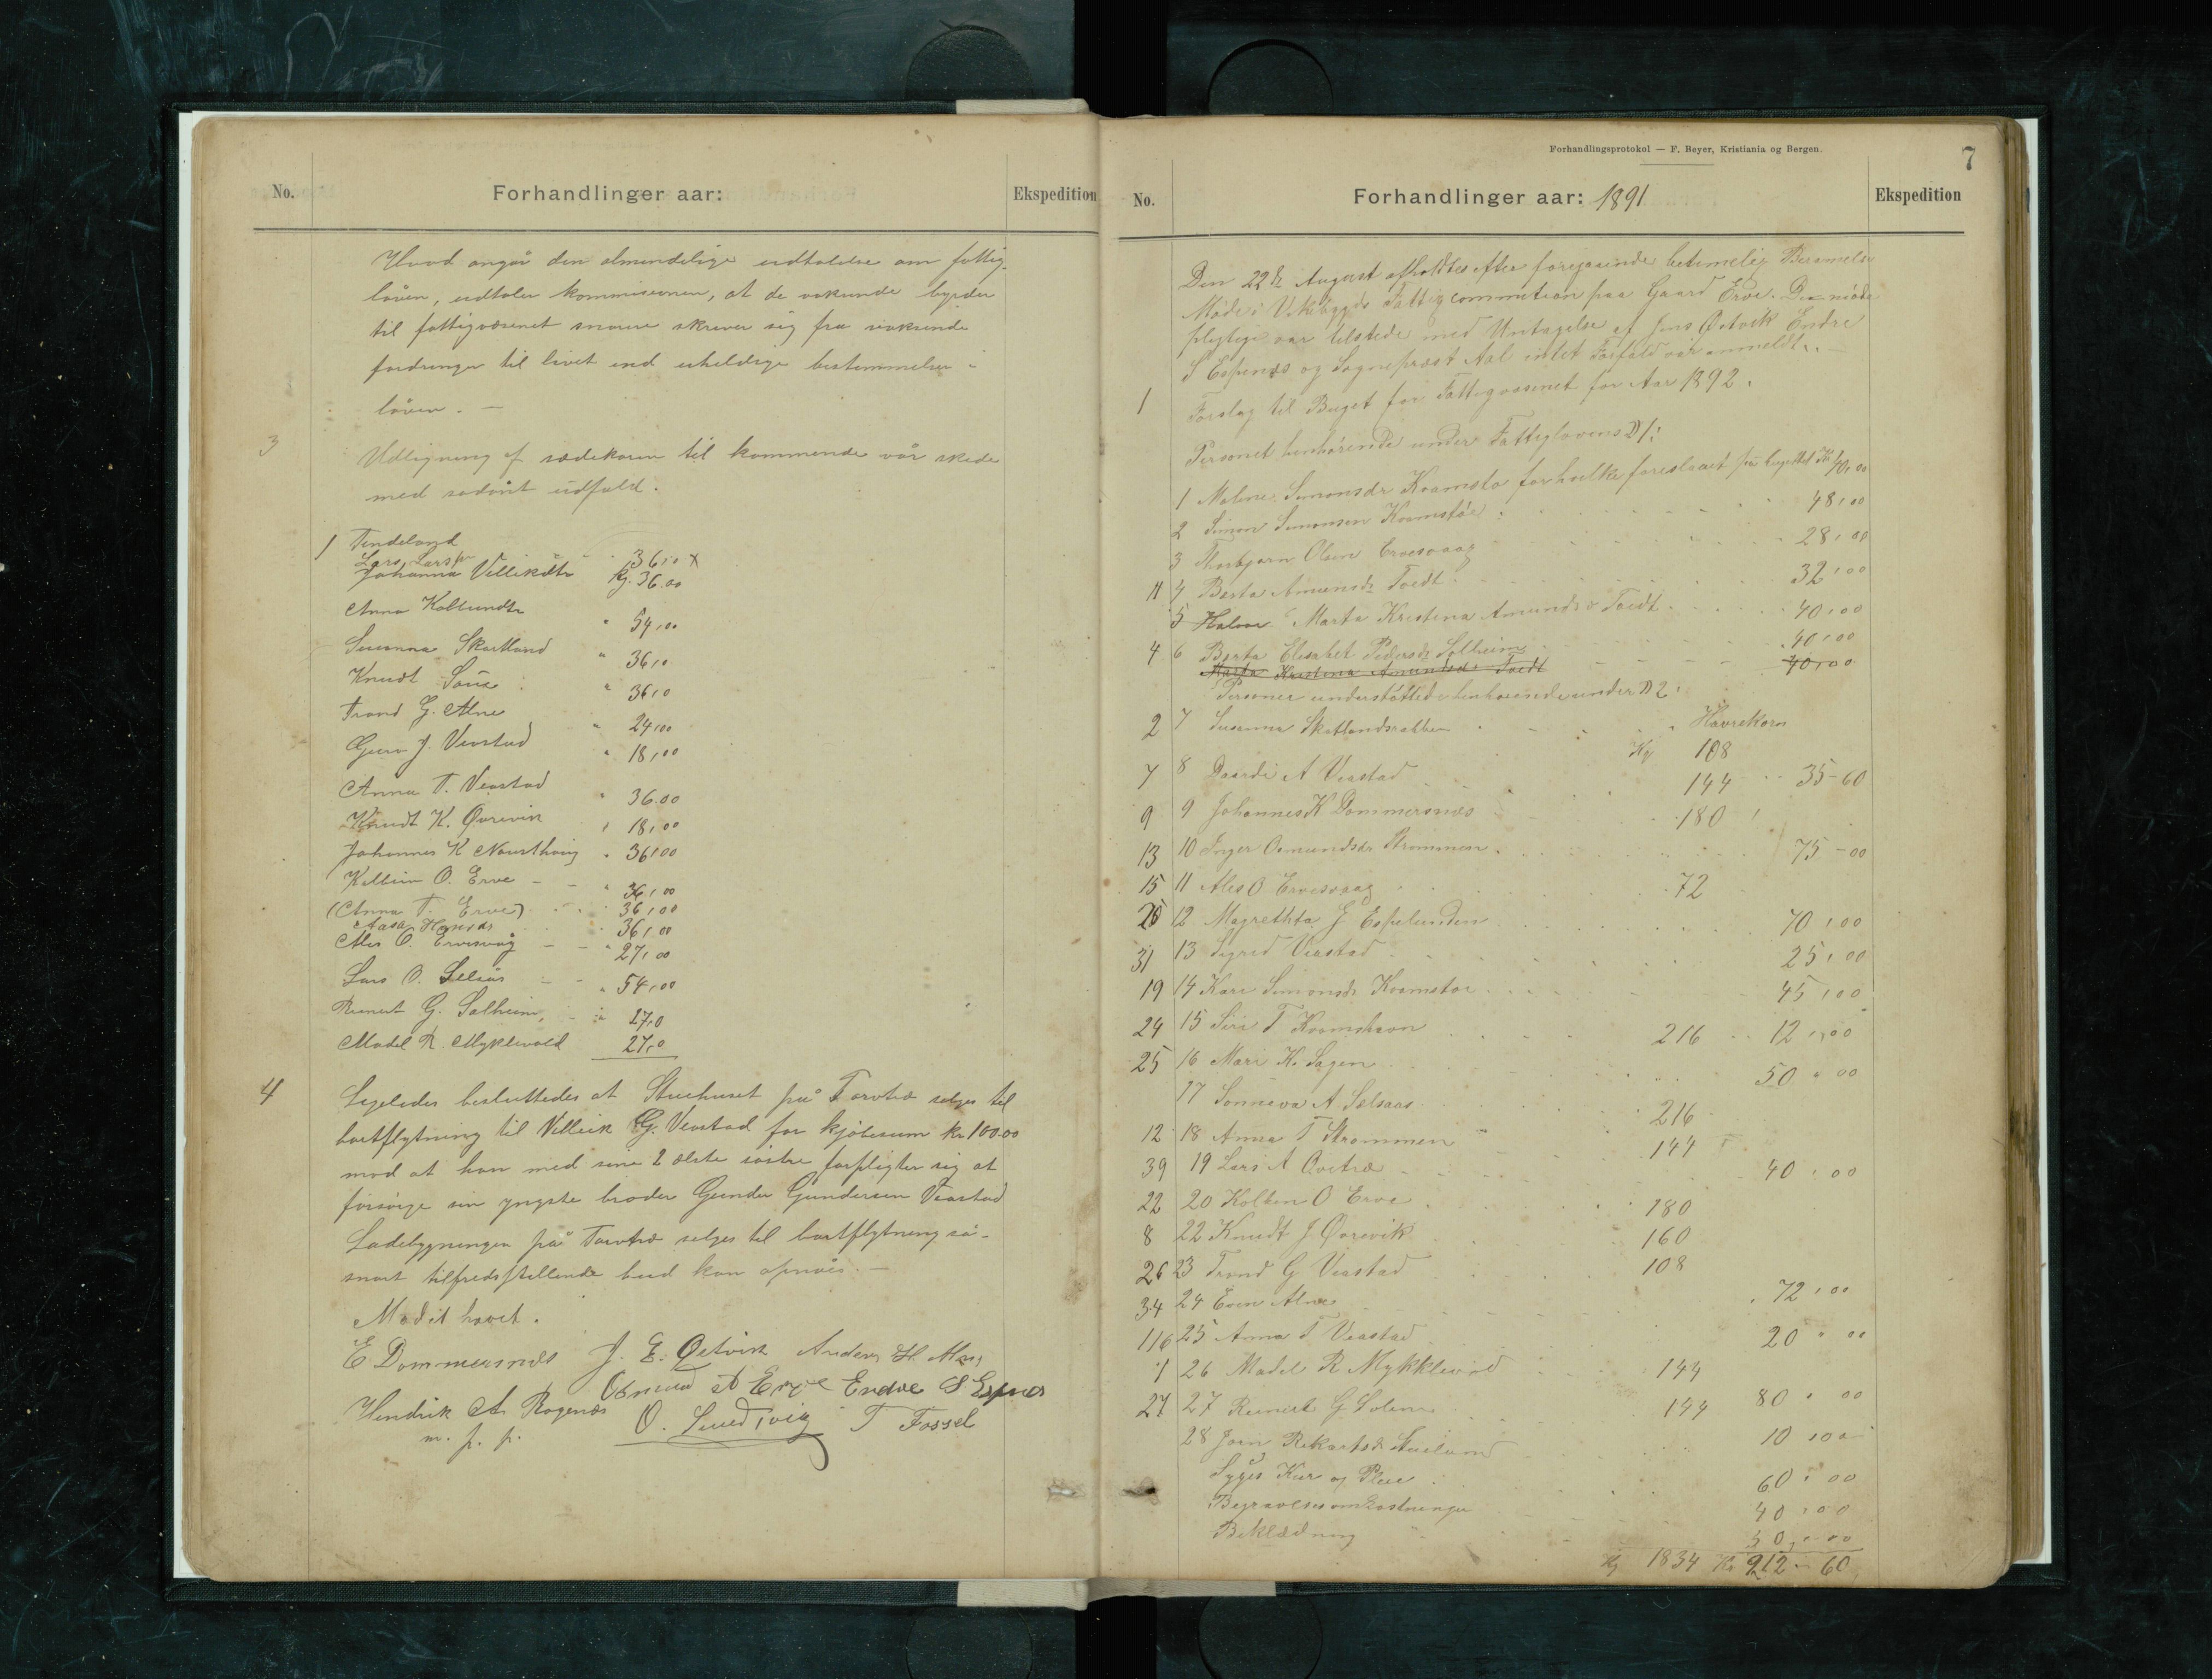 No.
Forhandlinger aar:
Ekspedition
Hvad angår den almindelige udtalelse om fattig-
loven, udtaler kommisionen, at de voksende byrder
til fattigvæsenet snarere skriver sig fra voksende
fordringer til livet end uheldige bestemmelser i
loven. —
3
Udligning af sædekorn til kommende vår skede
med sådant udfald.
1 Tendeland
Lars Lars 36,0 x
Johanna Villiksdtr kg. 36.00
Anna Kolbundtr " 54,00
Susanna Skartland " 36,0
Knudt " 36,0
Trond G. Alne " 24,00
Guro J. Veastad " 18,00
Anna T. Veastad " 36.00
Knudt K. Qvrevik " 18,00
Johannes K Nousthoug " 36,00
Kolbein O. Erve - - " 36,00
(Anna T. Erve) 36,00
Aasa Hansdr 36,00
Ales O. Ervesvåg - - " 27,00
Lars O. - - " 54,00
Reinert G. Solheim, - " 27,0
Madel R. Myklevold 27,0
4
Ligeledes besluttedes at Stuehuset på Torvtræ selges til
bortflytning til Villeik G. Veastad for kjøbesum kr 100.00
mod at han med sine 2 ælste søstre forpligter sig at
forsørge sin yngste broder Gunder Gundersen Veastad
Ladebygningen på Torvtræ selges til bortflytning så-
snart tilfredsstillende bud kan opnåes. —
Mødet hævet.
E Dommersnæs J. E. Qetvik Anders H. Alne
Osmund A Erve Endre S Espnes
Hendrik A. Rogenæs O. Lundsvig T Fossel
m. p. p.
Forhandlingsprotokol — F. Beyer, Kristiania og Bergen.
7
No.
Forhandlinger aar: 1891
Ekspedition
Den 22de August afholdtes efter foregaaende betimelig Berammelse
Møde i Vikebygds Fattigcommition paa Gaard Erve. De møde
pligtige var tilstede med Untagelse af Jens Øetvik Endre
S Espenæs og Sognepræst Aal intet Forfald var anmeldt. —
1 Forslag til Buget for Fattigvæsenet for Aar 1892.
Personer henhørende under Fattiglovens § 1:
1 Malene Simonsdr Kvamsto for hvilke foreslaaet Kr 40,00
2 Simon Simonsen Kvamstøe 48,00
3 Thorbjørn Olsen Ervesvaag 28,00
11 4 Berta Amunsdr Toedt 32,00
5 Halvor Marta Kristena Amundsdr Toedt 40,00
4 6 Berta Elisabet Pedersdr Solheim 40,00
Marta Kristena Amundsdr Toedt 40,00
Personer understøttede henhørende under § 2
2 7 Susanna Skatlandsrabben Havrekorn
Kg 108
7 8 Daardi A Veastad 144 35-60
9 9 Johannes K Dommersnæs 180
13 10 Inger Osmundsdr Strømmen 75-00
15 11 Ales O Ervesvaag 72
20 12 Magrethta J Espelunden 70,00
31 13 Sigred Veastad 25,00
19 14 Kari Simonsdr Kvamstøe 45,00
24 15 Siri T Kvamshavn 216 12,00
25 16 Mari K. Sagen 50 " 00
17 Sønneva A Sælsaas 216
12 18 Anna T Strømmen 144
39 19 Lars A Qvitræ 40,00
22 20 Kolben O Erve 180
8 22 Knudt J Qvrevik 160
26 23 Trond G Veastad 108
34 24 Even Alne 72,00
116 25 Anna T Veastad 20 " 00
1 26 Madel R Mykklevold 144
27 27 Reinert G Solem 144 80 " 00
28 Jorin Rikartsdr 10,00
Syges Kur og Pleie 60,00
Begravelsesomkostninger 40,00
Beklædning 30,00
Kg 1834 Kr 912-60